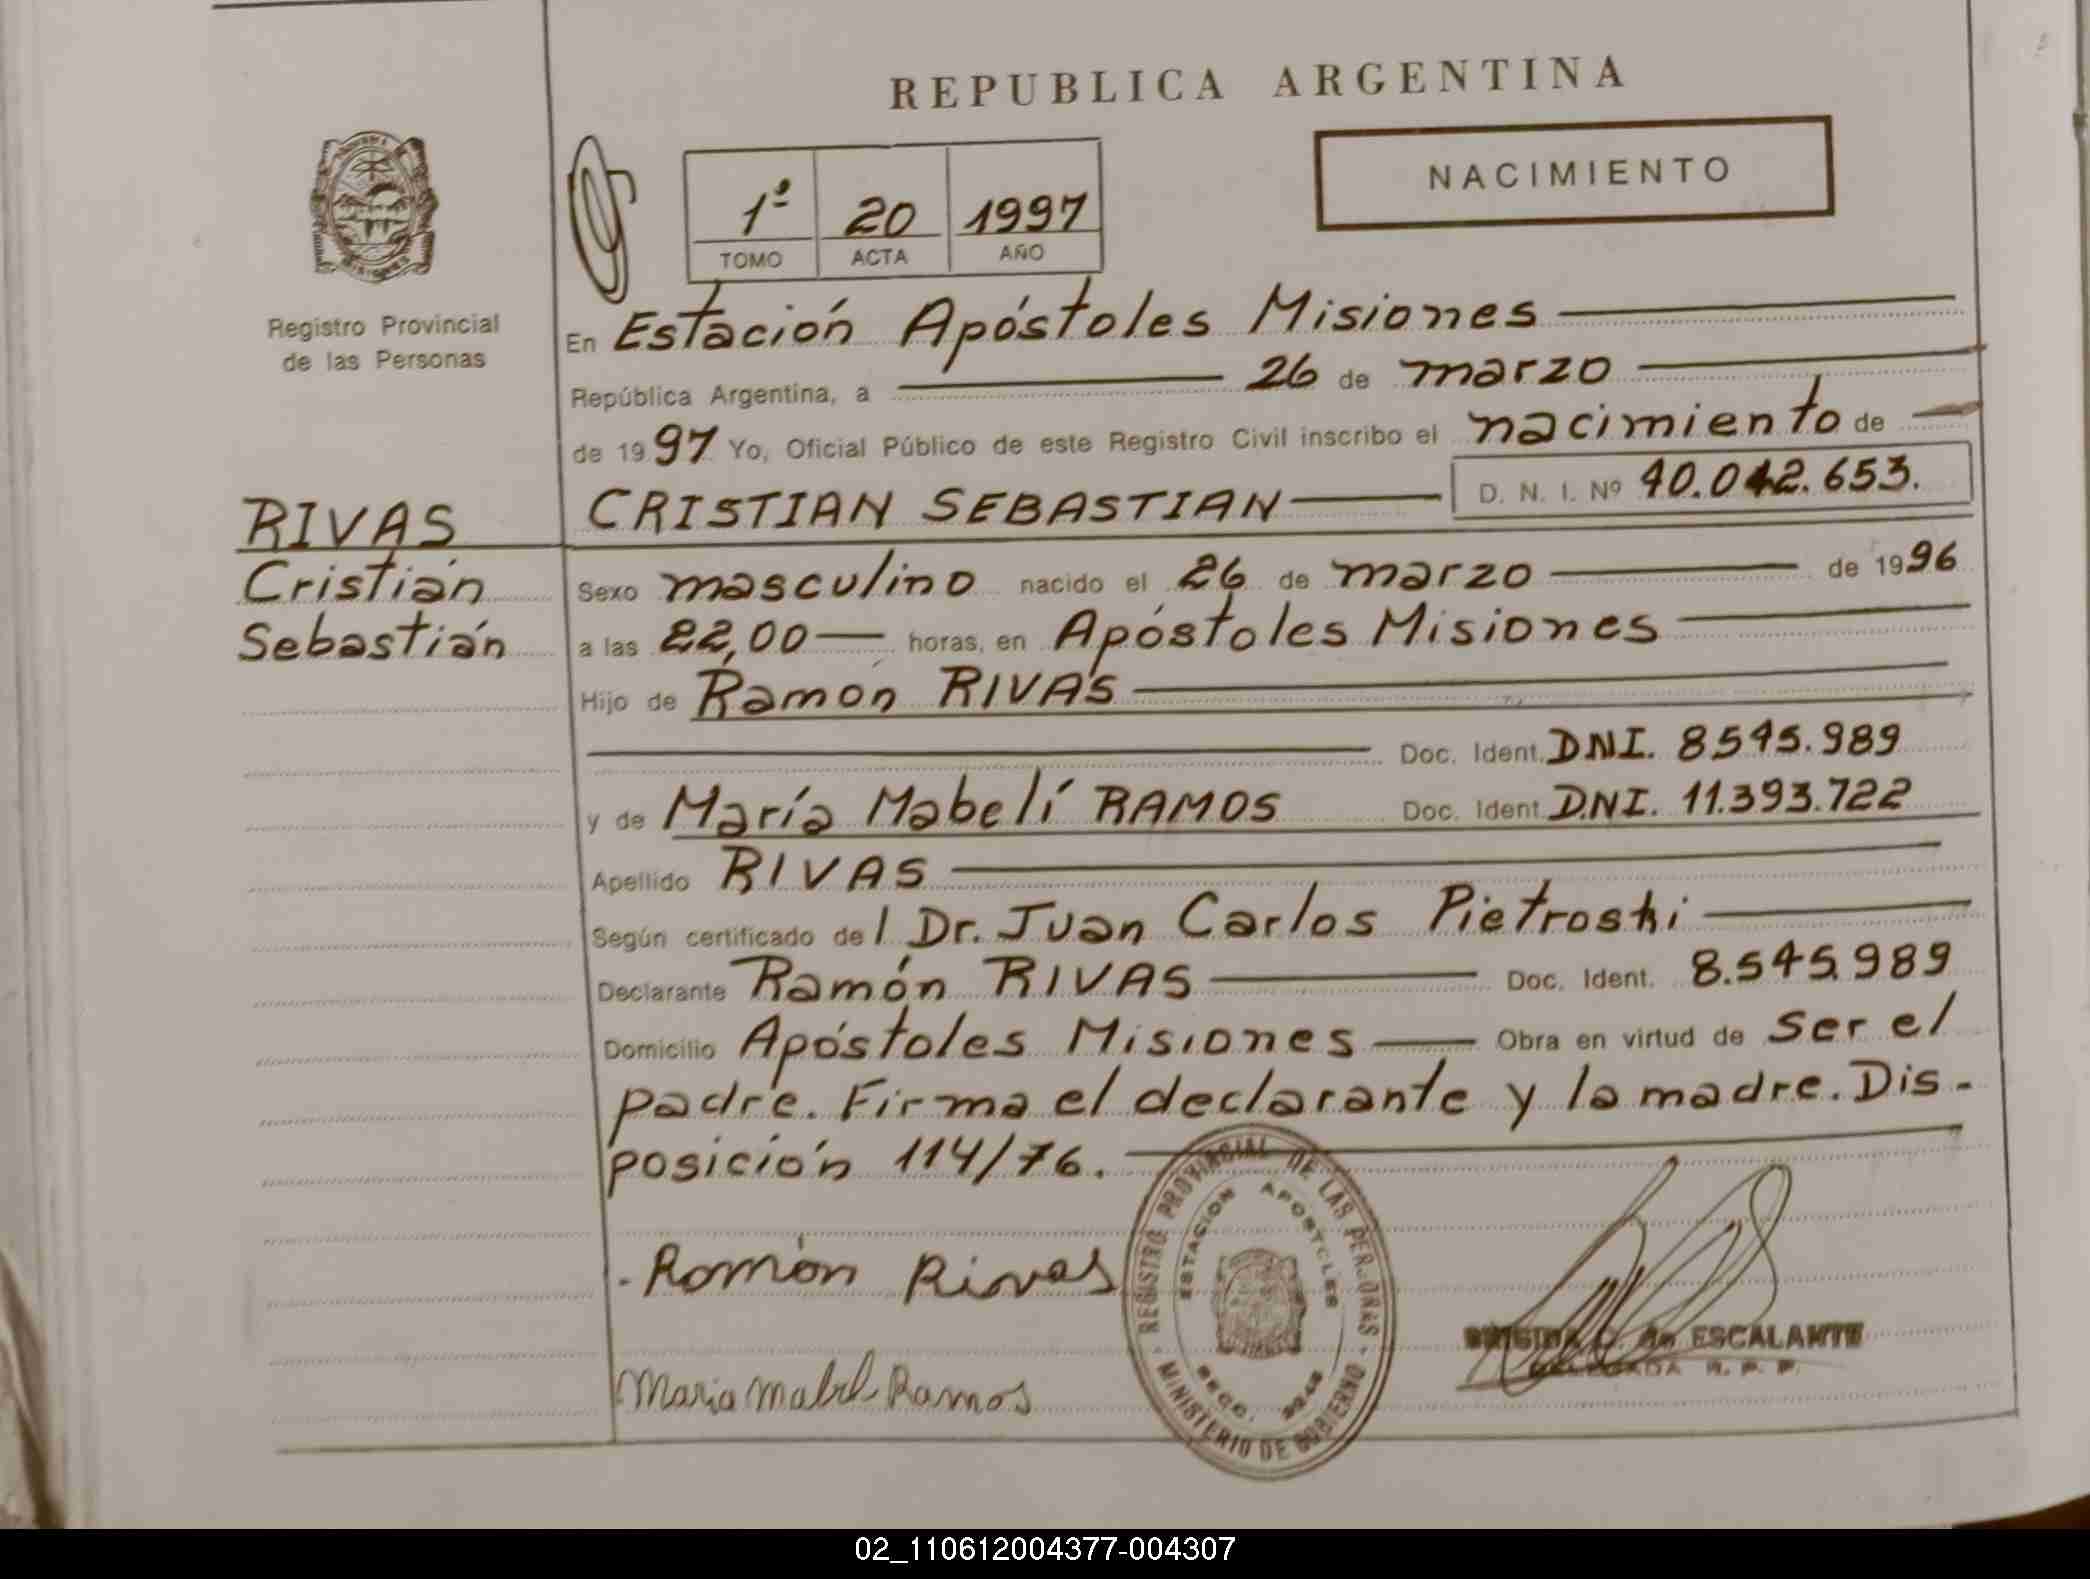 REPUBLICA ARGENTINA
NACIMIENTO
1º 20 1997
TOMO ACTA AÑO
Registro Provincial
de las Personas
En Estación Apóstoles Misiones
República Argentina, a 26 de marzo
de 1997 Yo, Oficial Público de este Registro Civil inscribo el nacimiento de
RIVAS
Cristián
Sebastián
CRISTIAN SEBASTIAN D. N. I. Nº 40.042.653.
Sexo masculino nacido el 26 de marzo de 1996
a las 22,00 horas, en Apóstoles Misiones
Hijo de Ramón RIVAS
Doc. Ident. DNI. 8545.989
y de María Mabelí RAMOS Doc. Ident. DNI. 11.393.722
Apellido RIVAS
Según certificado del Dr. Juan Carlos Pietroski
Declarante Ramón RIVAS Doc. Ident. 8.545.989
Domicilio Apóstoles Misiones Obra en virtud de ser el
padre. Firma el declarante y la madre. Dis-
posición 114/76.
Ramón Rivas
Maria Mabel Ramos
REGISTRO PROVINCIAL DE LAS PERSONAS
ESTACION APOSTOLES
SECC.
MINISTERIO DE GOBIERNO
de ESCALANTE
DELEGADA R. P. P.
02_110612004377-004307